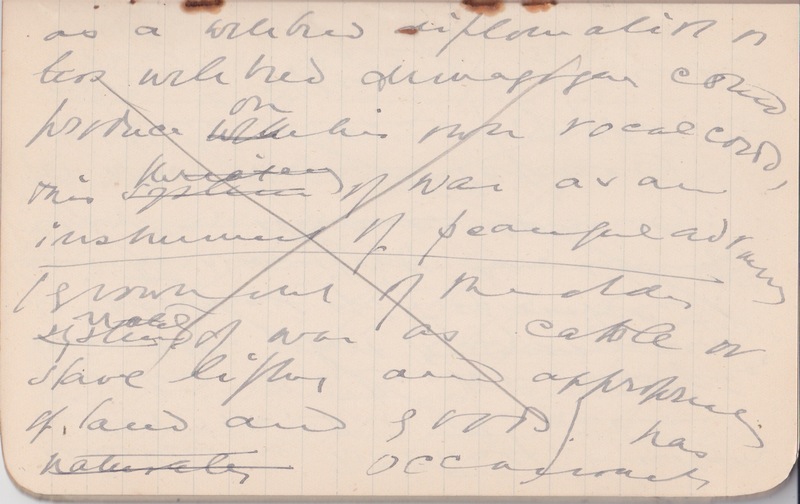 as a well bred diplomatist or
less well bred demagogue could
produce on his own vocal cords,
this threatening of war as an
instrument of peaceful advancing
grown out of the older
system of war as cattle or
slave lifting and appropriating
of land and goods has
naturally occasionally